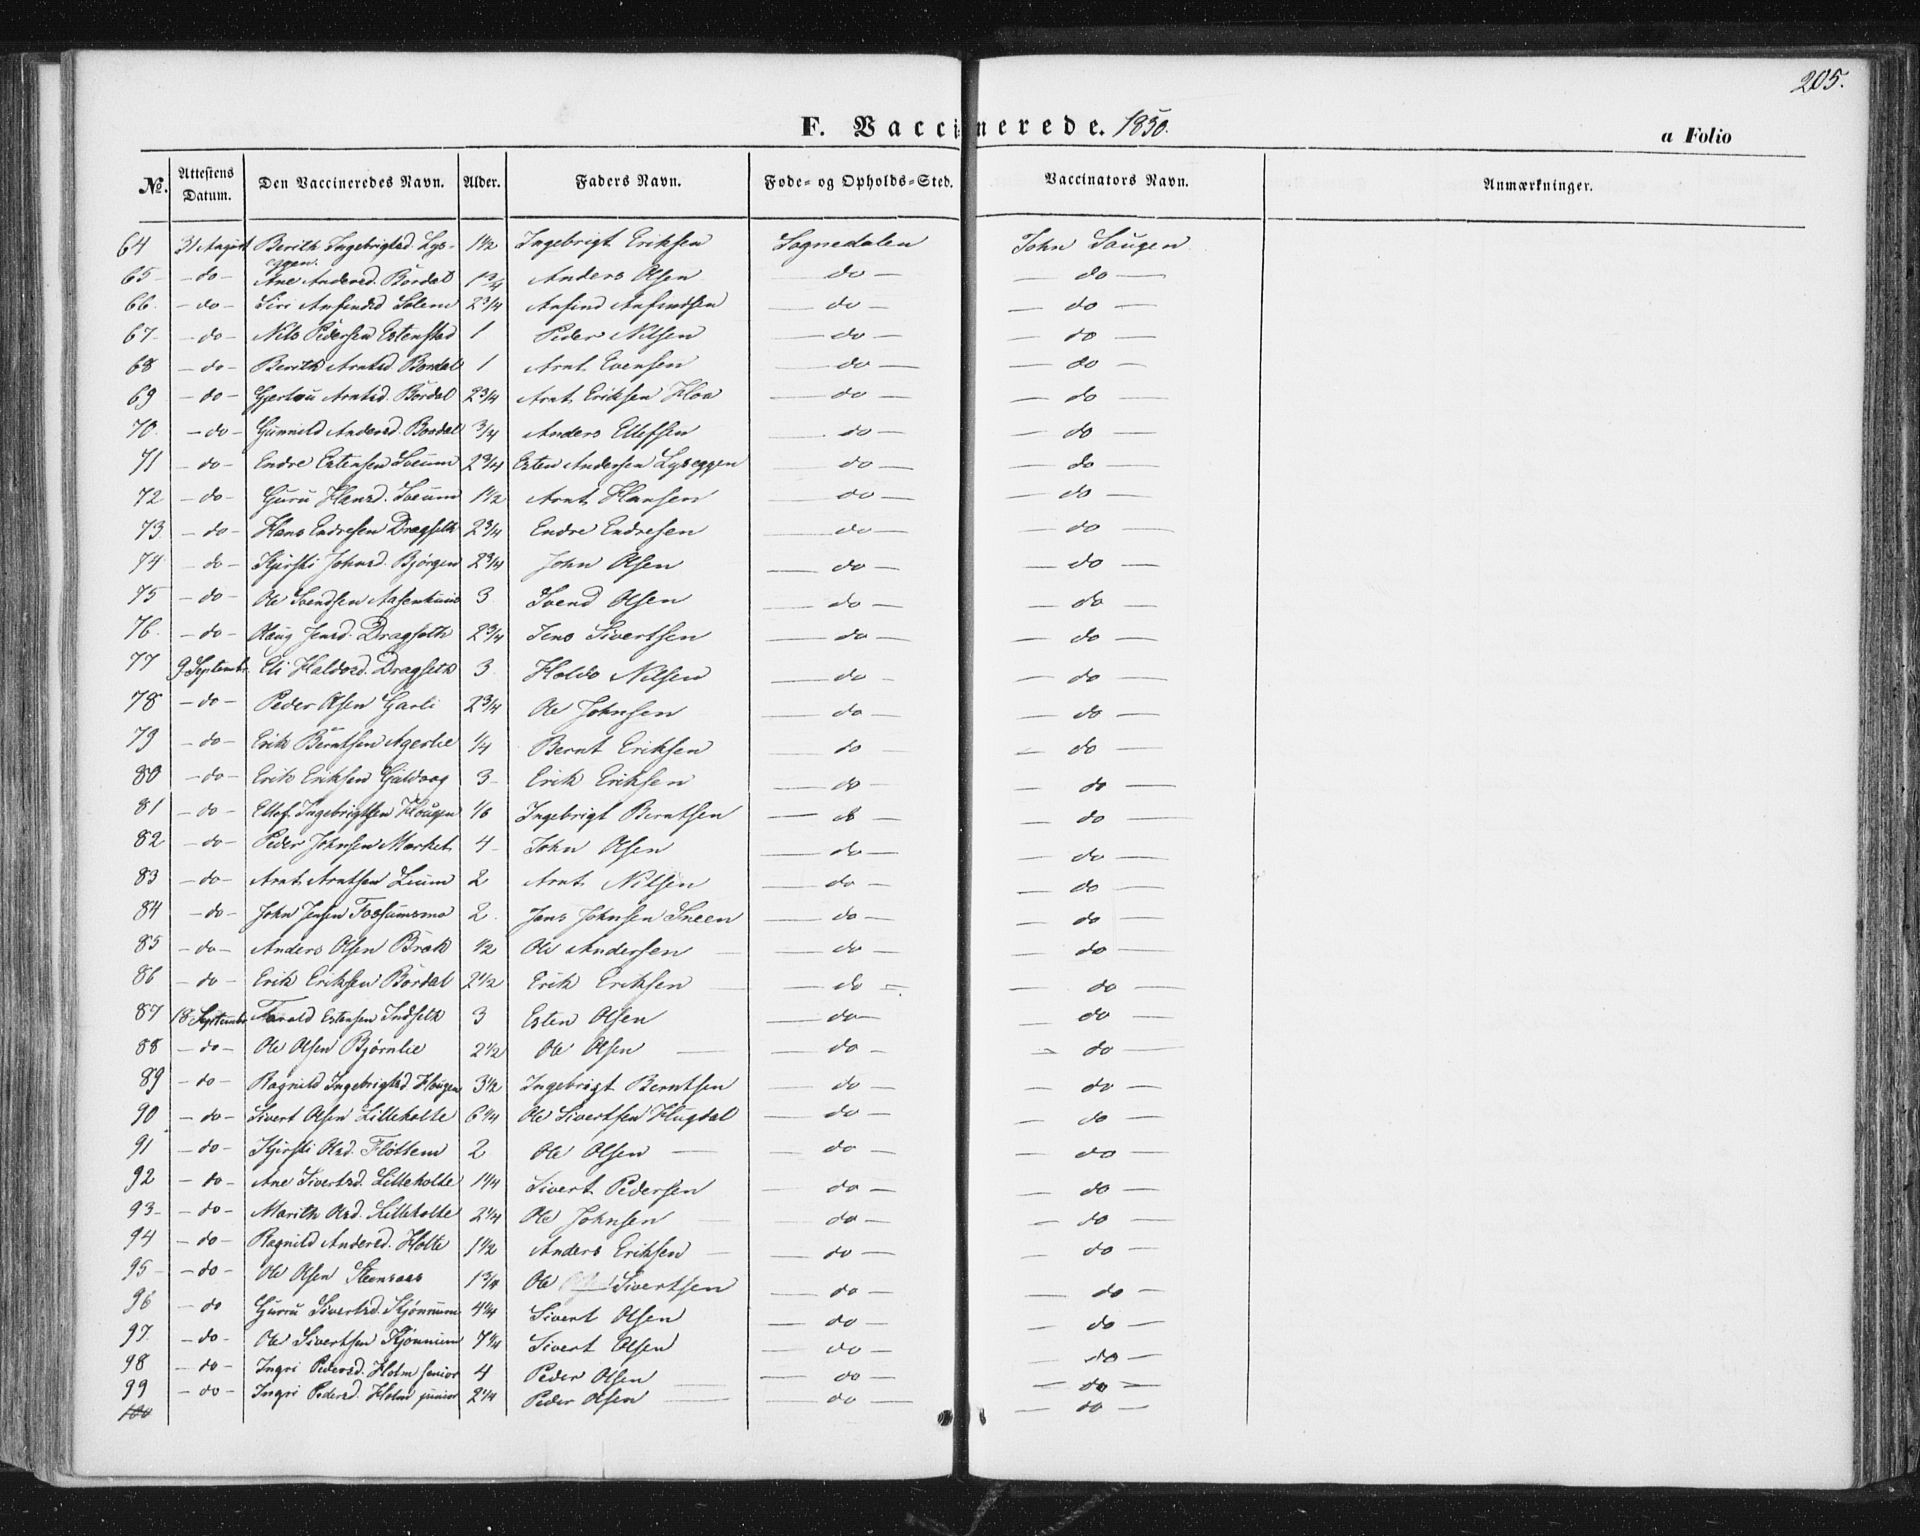 205.
F. Vaccinerede. 1850.
a Folio
No. Attestens Datum. Den Vaccineredes Navn. Alder. Faders Navn. Føde- og Opholds-Sted. Vaccinators Navn. Anmærkninger.
64 31 August Berith Ingebrigtsd. Lyseggen. 1 1/2 Ingebrigt Eriksen Sognedalen John Haugen
65 - do - Ane Andersd. Bordal 1 3/4 Anders Olsen - do - - do -
66. - do - Siri Anfindsd Solem 2 3/4 Anfind Anfindsen - do - - do -
67. - do - Nils Pedersen Estenstad 1 Peder Nilsen - do - - do -
68 - do - Berith Arntsd Bordal 1 Arnt Evensen - do - - do -
69 - do - Gjertru Arntsd. Bordal 2 3/4 Arnt Eriksen Hoa - do - - do -
70. - do - Gunnild Andersd. Bordal 3/4 Anders Ellefsen - do - - do -
71 - do - Endre Estensen Soeum 2 3/4 Esten Andersen Lyseggen - do - - do -
72 - do - Guru Hansd. Soeum 1 1/2 Arnt Hansen - do - - do -
73. - do - Hans Endresen Dragseth 2 3/4 Endre Endresen - do - - do -
74 - do - Kjersti Johnsd. Bjørgen 2 3/4 John Olsen - do - - do -
75 - do - Ole Svendsen 3 Svend Olsen - do - - do -
76. - do - Olaug Jensd. Dragseth 2 3/4 Jens Sivertsen - do - - do -
77 9 Septembr. Eli Haldosd. Dragseth 3 Haldo Nilsen - do - - do -
78 - do - Peder Olsen Garli 2 3/4 Ole Johnsen - do - - do -
79 - do - Erik Berntsen Agerlie 1/4 Bernt Eriksen - do - - do -
80 - do - Erik Eriksen Gjaldaag 3 Erik Eriksen - do - - do -
81 - do - Ellef Ingebrigtsen Hougen 1/6 Ingebrigt Berntsen - do - - do -
82 - do - Peder Johnsen Market 4 John Olsen - do - - do -
83 - do - Arnt Arntsen Lium 2 Arnt Nilsen - do - - do -
84 - do - John Jensen Fossumsmo 2. Jens Johnsen Sneen - do - - do -
85 - do - Anders Olsen Bræk 1/2 Ole Andersen - do - - do -
86 - do - Erik Eriksen Bordal 2 1/2 Erik Eriksen - do - - do -
87 18 Septembr Estensen Indseth 3 Esten Olsen - do - - do -
88 - do - Ole Olsen Bjørnlie 2 1/2 Ole Olsen - do - - do -
89 - do - Ragnild Ingebrigtsd. Hougen 3 1/2 Ingebrigt Berntsen - do - - do -
90 - do - Sivert Olsen Lilleholte 6 1/4 Ole Sivertsen Hugdal - do - - do -
91 - do - Kjersti Olsd. Flottem 2 Ole Olsen - do - - do -
92 - do - Ane Sivertsd. Lilleholte 1 1/4 Sivert Pedersen - do - - do -
93 - do - Marith Olsd. Lilleholte 2 1/4 Ole Johnsen - do - - do -
94 - do - Ragnild Andersd. Holte 1 1/2 Anders Eriksen - do - - do -
95 - do - Ole Olsen Steensaas 1 3/4 Ole Sivertsen - do - - do -
96 - do Gurru Sivertsd. Kjønnum 4 1/4 Sivert Olsen - do - - do -
97. - do - Ole Sivertsen Kjønnum 7 1/4 Sivert Olsen - do - - do -
98 - do - Ingri Pedersd. Holm senior 4 Peder Olsen - do - - do -
99 - do - Ingri Pedersd. Holm junior 2 1/4 Peder Olsen - do - - do -
100